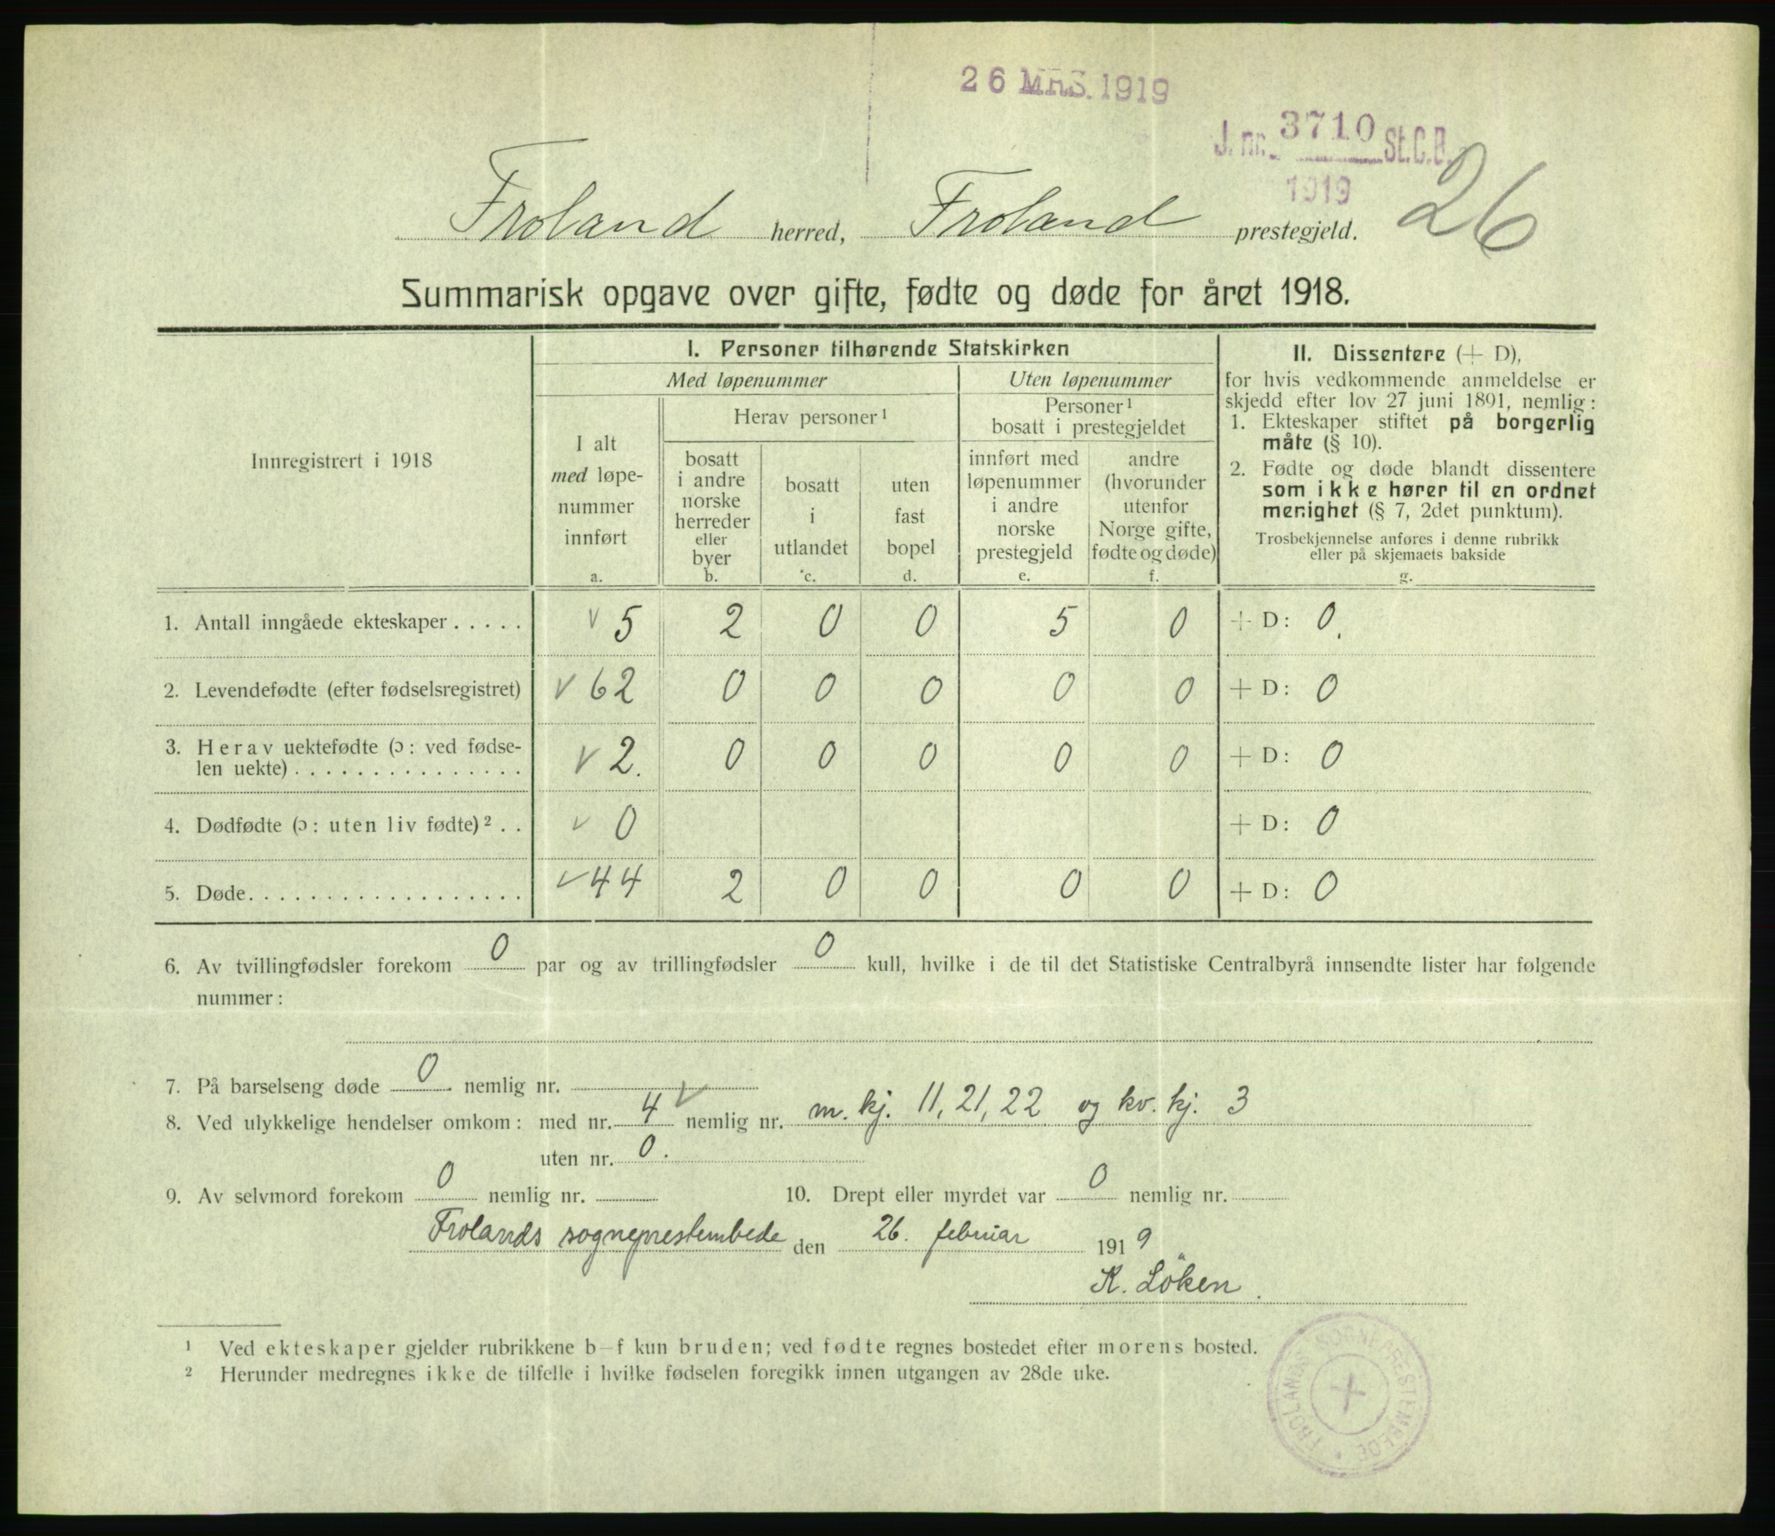 26 MRS. 1919
J. nr. 3710 St.C.B.
1919
26
Froland herred, Froland prestegjeld.
Summarisk opgave over gifte, fødte og døde for året 1918.
Innregistrert i 1918
I. Personer tilhørende Statskirken
Med løpenummer
Uten løpenummer
I alt
med løpe-
nummer
innført
a.
Herav personer ¹
bosatt
i andre
norske
herreder
eller
byer
b.
bosatt
i
utlandet
c.
uten
fast
bopel
d.
Personer ¹
bosatt i prestegjeldet
innført med
løpenummer
i andre
norske
prestegjeld
e.
andre
(hvorunder
utenfor
Norge gifte,
fødte og døde)
f.
II. Dissentere (+ D),
for hvis vedkommende anmeldelse er
skjedd efter lov 27 juni 1891, nemlig:
1. Ekteskaper stiftet på borgerlig
måte (§ 10).
2. Fødte og døde blandt dissentere
som ikke hører til en ordnet
menighet (§ 7, 2det punktum).
Trosbekjennelse anføres i denne rubrikk
eller på skjemaets bakside
g.
1. Antall inngåede ekteskaper . . . . . ✓ 5 2 0 0 5 0 + D: 0.
2. Levendefødte (efter fødselsregistret) ✓ 62 0 0 0 0 0 + D: 0
3. Herav uektefødte (ɔ: ved fødse-
len uekte) . . . . . . . . . . . . . . . ✓ 2. 0 0 0 0 0 + D: 0
4. Dødfødte (ɔ: uten liv fødte) ² . . ✓ 0 + D: 0
5. Døde. . . . . . . . . . . . . . . . . . ✓ 44 2 0 0 0 0 + D: 0
6. Av tvillingfødsler forekom 0 par og av trillingfødsler 0 kull, hvilke i de til det Statistiske Centralbyrå innsendte lister har følgende
nummer:
7. På barselseng døde 0 nemlig nr.
8. Ved ulykkelige hendelser omkom: med nr. 4 ✓ nemlig nr. m. kj. 11, 21, 22 og kv. kj. 3
uten nr. 0.
9. Av selvmord forekom 0 nemlig nr. 10. Drept eller myrdet var 0 nemlig nr.
Frolands sogneprestembede den 26. februar 1919
K. Löken.
¹ Ved ekteskaper gjelder rubrikkene b–f kun bruden; ved fødte regnes bostedet efter morens bosted.
² Herunder medregnes ikke de tilfelle i hvilke fødselen foregikk innen utgangen av 28de uke.
FROLANDS SOGNEPRESTEMBEDE